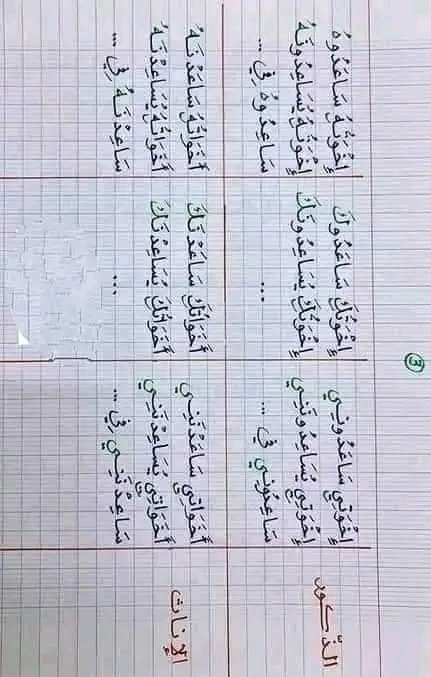 ③
الذّكور
إِخْوَتِي سَاعَدُونِي
إِخْوَتِي يُسَاعِدُونَنِي
سَاعِدُونِي فِي ...
إِخْوَتُكَ سَاعَدُوكَ
إِخْوَتُكَ يُسَاعِدُونَكَ
...
إِخْوَتُهُ سَاعَدُوهُ
إِخْوَتُهُ يُسَاعِدُونَهُ
سَاعِدُوهُ فِي ...
الإِناث
أَخَوَاتِي سَاعَدْنَنِي
أَخَوَاتِي يُسَاعِدْنَنِي
سَاعِدْنَنِي فِي ...
أَخَوَاتُكَ سَاعَدْنَكَ
أَخَوَاتُكَ يُسَاعِدْنَكَ
...
أَخَوَاتُهُ سَاعَدْنَهُ
أَخَوَاتُهُ يُسَاعِدْنَهُ
سَاعِدْنَهُ فِي ...